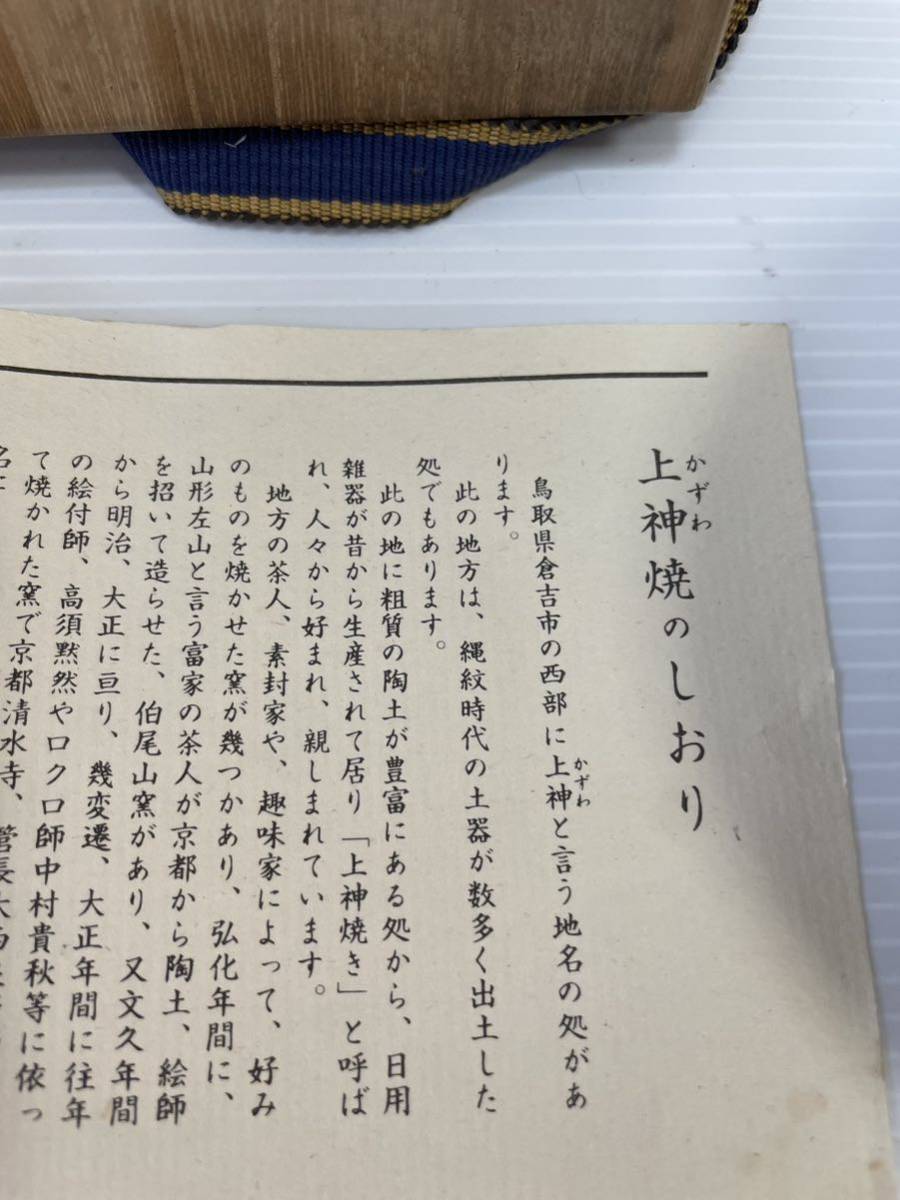 上神焼のしおり
かずわ
鳥取県倉吉市の西部に上神と言う地名の処があ
かずわ
ります。
此の地方は、縄紋時代の土器が数多く出土した
処でもあります。
此の地に粗質の陶土が豊富にある処から、日用
雑器が昔から生産されて居り「上神焼き」と呼ば
れ、人々から好まれ、親しまれています。
地方の茶人、素封家や、趣味家によって、好み
のものを焼かせた窯が幾つかあり、弘化年間に、
山形左山と言う富家の茶人が京都から陶土、絵師
を招いて造らせた、伯尾山窯があり、又文久年間
から明治、大正に亘り、幾変遷、大正年間に往年
の絵付師、高須黙然やロクロ師中村貴秋等に依っ
て焼かれた窯で京都清水寺、管長大西